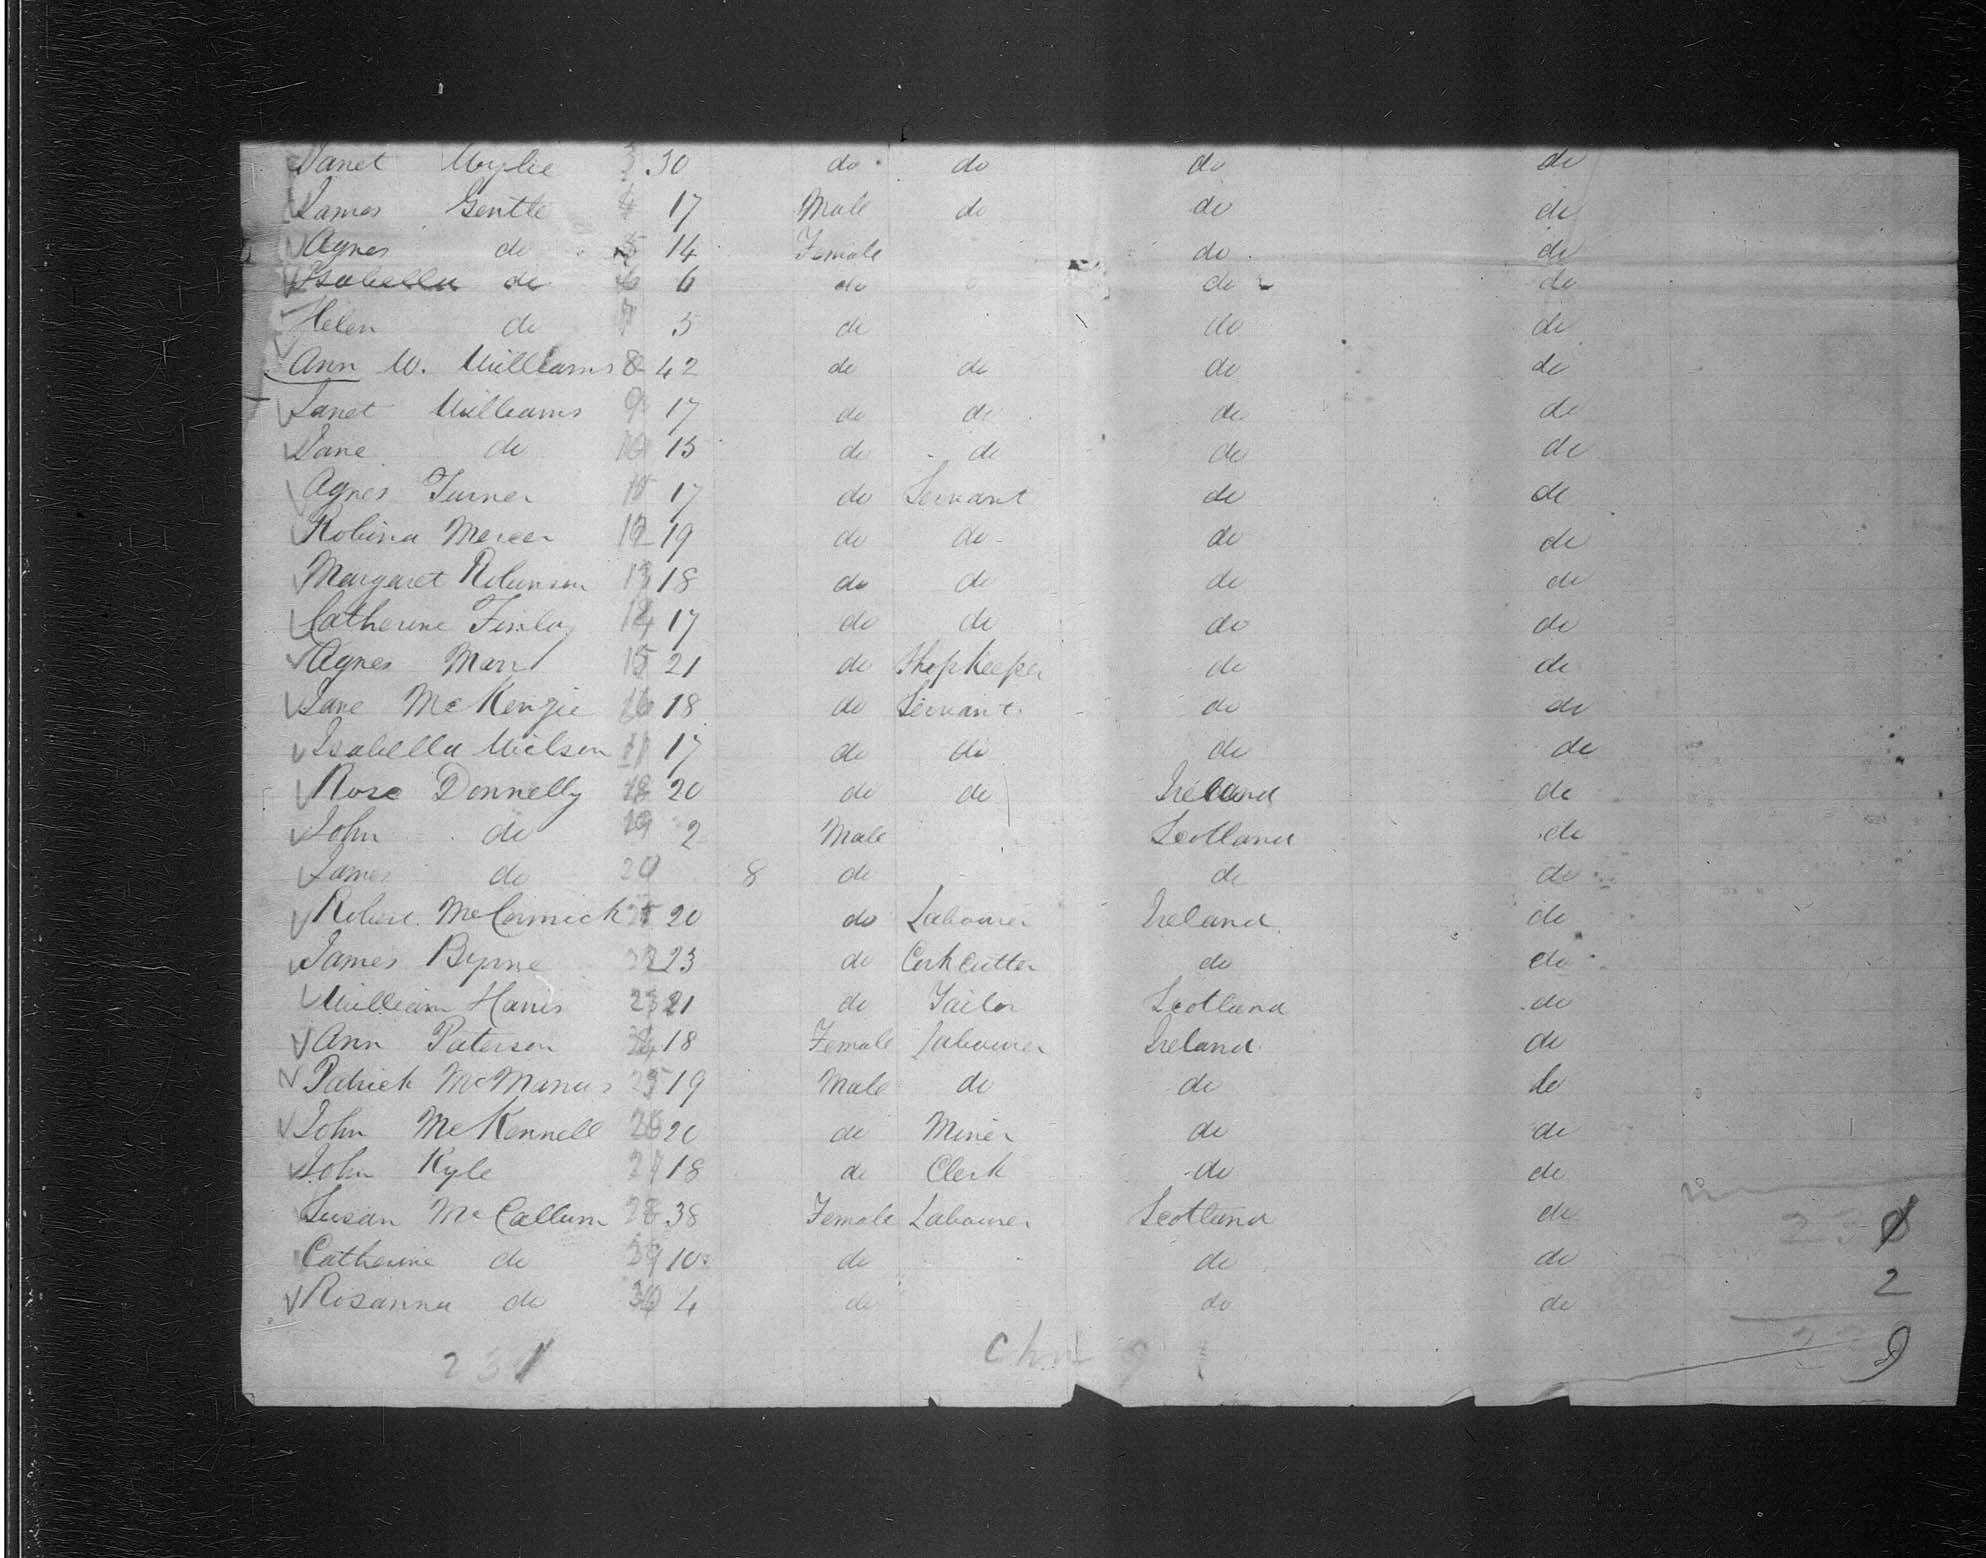 Janet Wylie 3 30 do do do do
James Gentle 4 17 Male do do do
Agnes do 5 14 Female do do
Isabella do 6 6 do do do
Helen do 7 3 do do do
Ann W. Williams 8 42 do do do do
Janet Williams 9 17 do do do do
Jane do 10 13 do do do do
Agnes Turner 11 17 do Servant do do
Robina Mercer 12 19 do do do do
Margaret Robinson 13 18 do do do do
Catherine Finlay 14 17 do do do do
Agnes Marr 15 21 do Shopkeeper do do
Jane McKenzie 16 18 do Servant do do
Isabella Wilson 17 17 do do do do
Rose Donnelly 18 20 do do Ireland do
John do 19 2 Male Scotland do
James do 20 8 do do do
Robert McCormick 21 20 do Labourer Ireland do
James Byrne 22 23 do Corkcutter do do
William Harris 23 21 do Tailor Scotland do
Ann Paterson 24 18 Female Labourer Ireland do
Patrick McManus 25 19 Male do do do
John McKennell 26 20 do Miner do do
John Kyle 27 18 do Clerk do do
Susan McCallum 28 38 Female Labourer Scotland do
Catherine do 29 10 do do do
Rosanna do 30 4 do do do
2
231 9